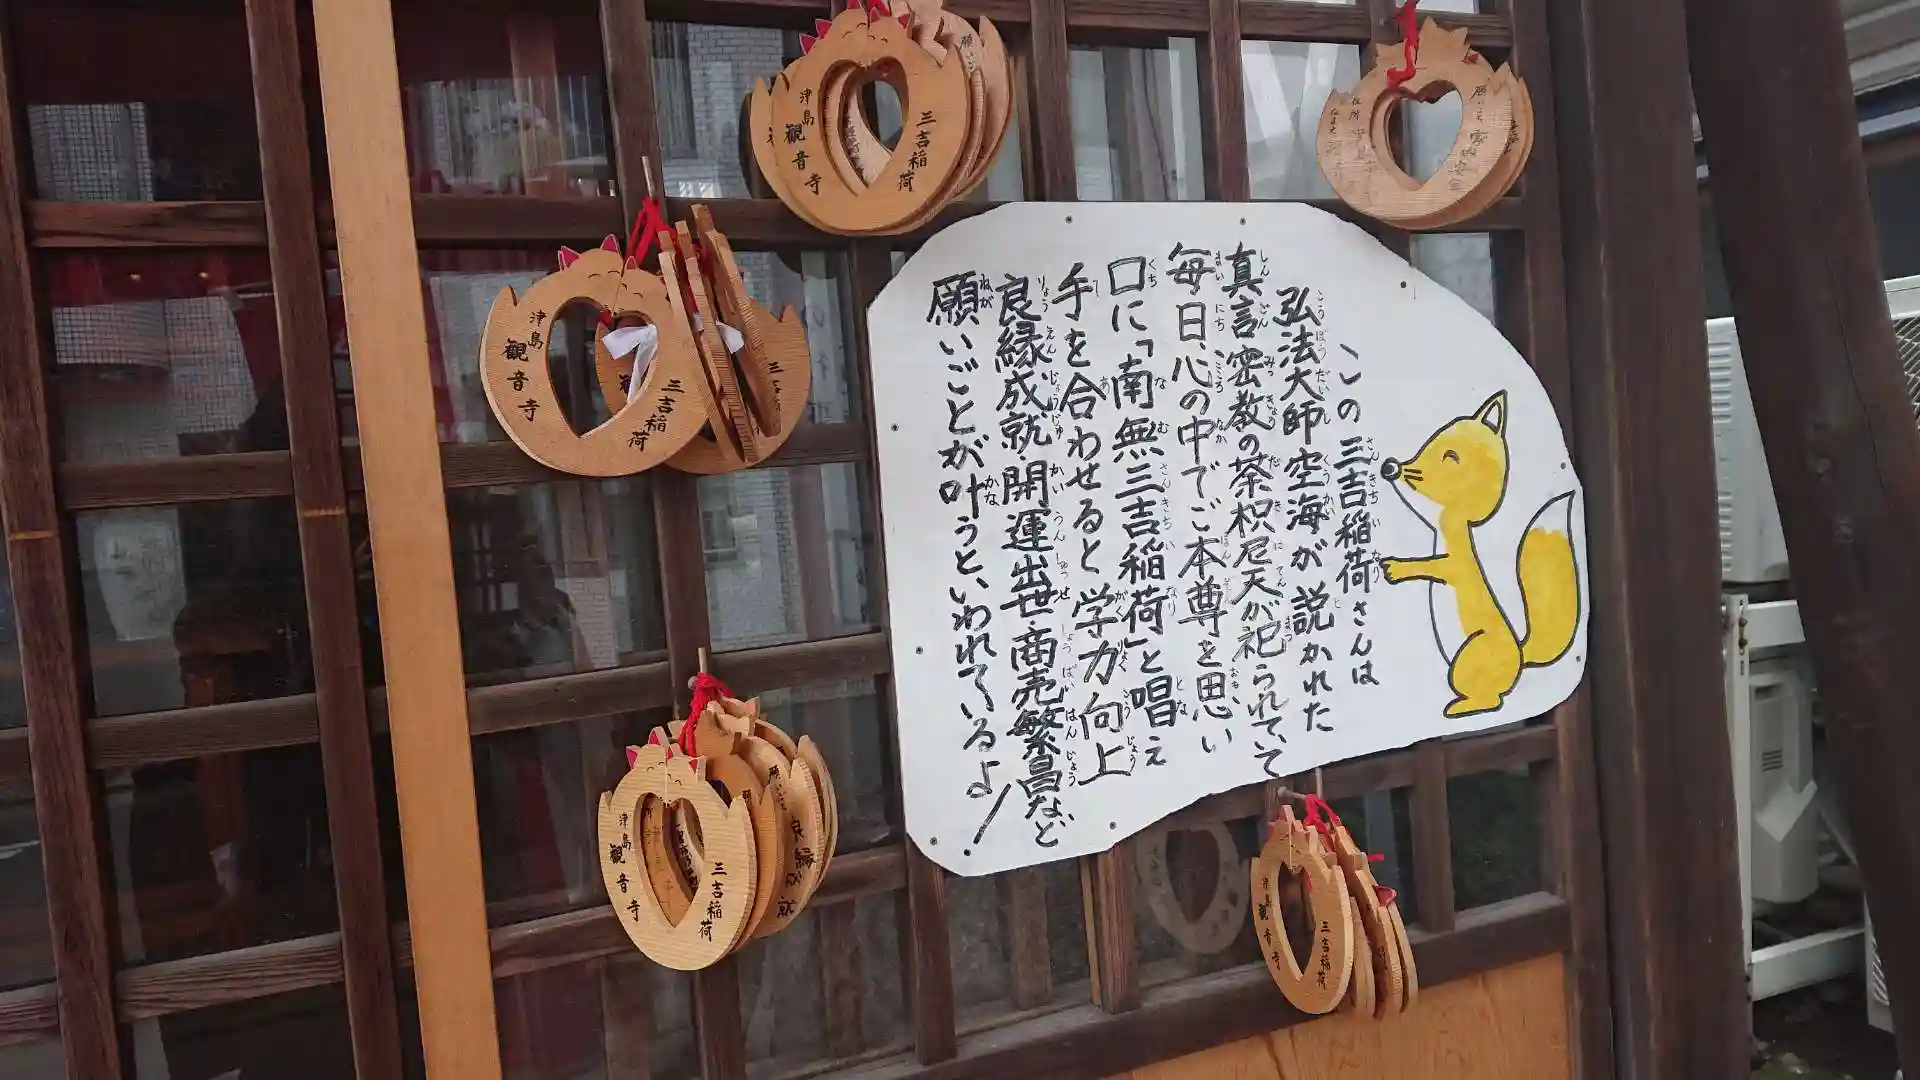 この三吉稲荷さんは
弘法大師空海が説かれた
真言密教の荼枳尼天が祀られていて
毎日、心の中でご本尊を思い
口に「南無三吉稲荷」と唱え
手を合わせると学力向上
良縁成就・開運出世・商売繁昌など
願いごとが叶うと、いわれているよ!
三吉稲荷
津島
観音寺
三吉稲荷
津島
観音寺
三吉稲荷
津島
観音寺
良縁成就
三吉稲荷
津島
観音寺